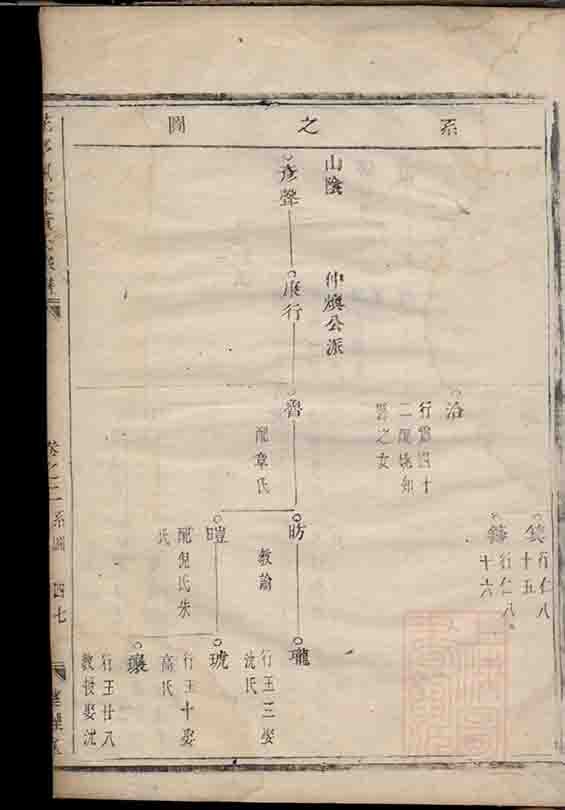 系之圖
山陰
仲璵公派
彥聲
雁行
魯
配章氏
治
行質四十
二配姚知
縣之女
行仁八
十五
行仁八
十六
昉
教諭
暟
配倪氏朱
氏
瓏
行玉三娶
沈氏
琥
行玉十娶
高氏
瓖
行玉廿八
教授娶沈
卷之二 系圖 四七